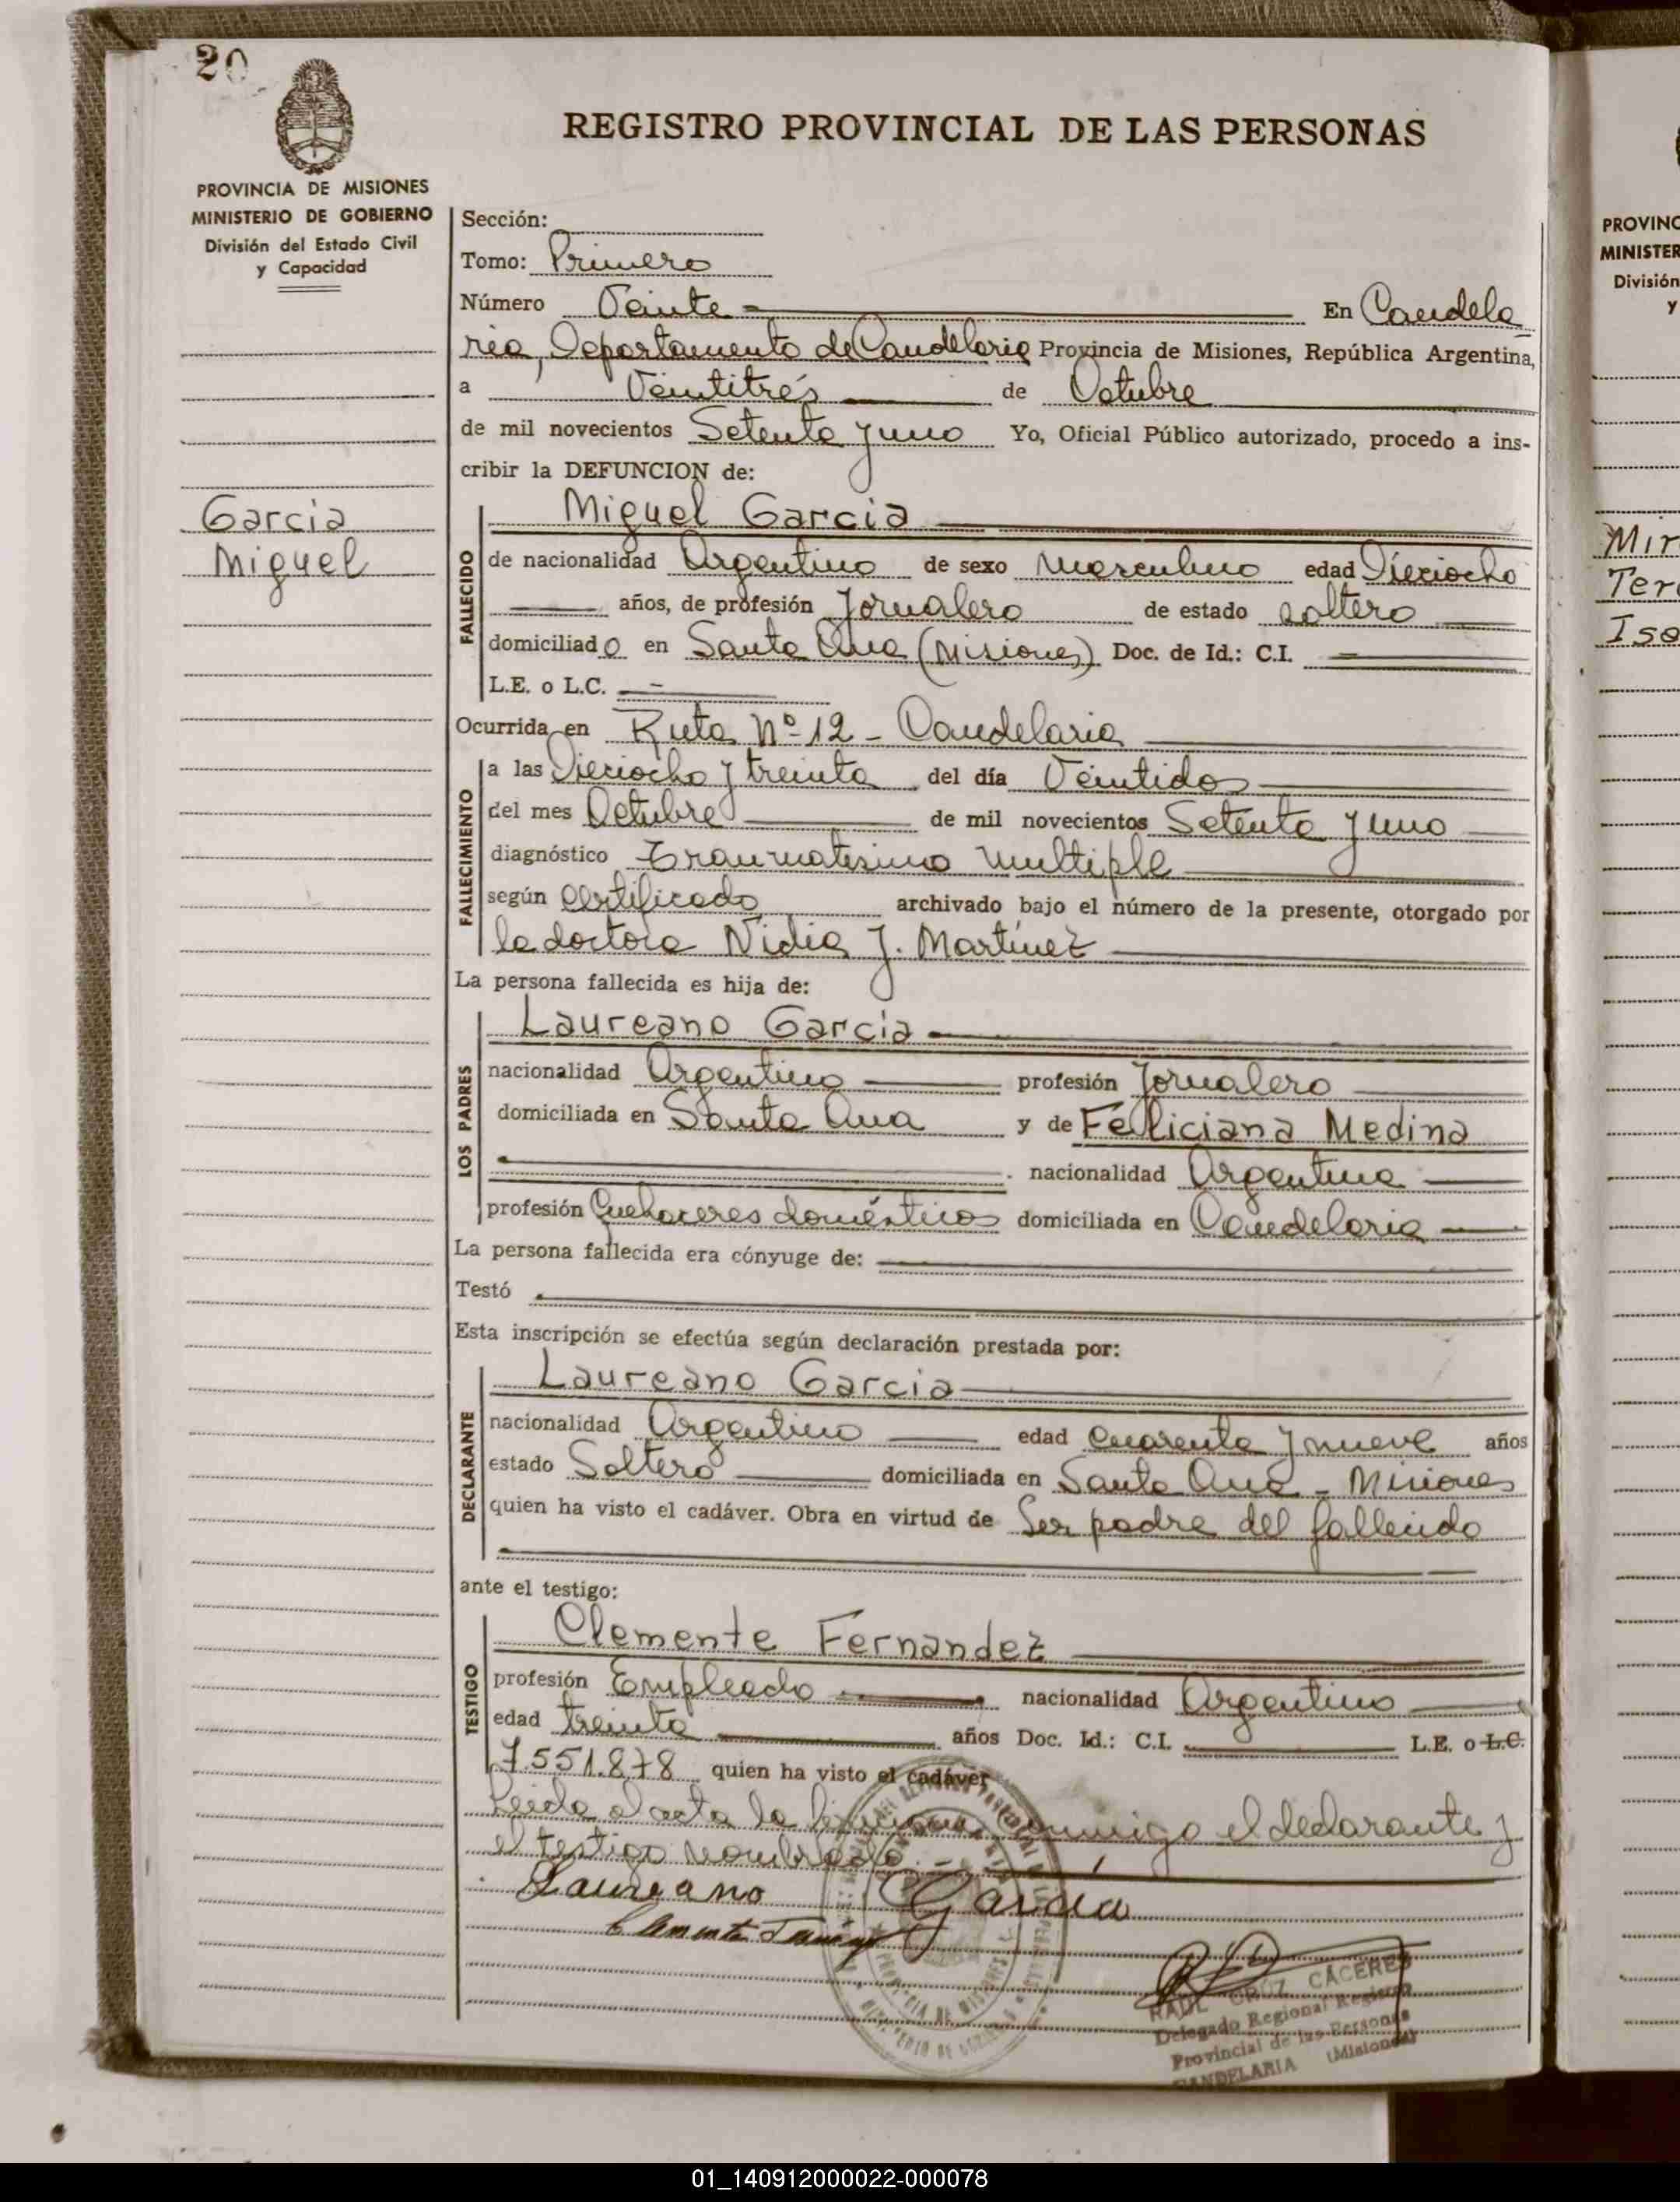 20
REGISTRO PROVINCIAL DE LAS PERSONAS
PROVINCIA DE MISIONES
MINISTERIO DE GOBIERNO
División del Estado Civil
y Capacidad
Sección:
Tomo: Primero
Número Veinte En Candela
ria, Departamento de Candelaria Provincia de Misiones, República Argentina,
a Veintitrés de Octubre
de mil novecientos Setenta y uno Yo, Oficial Público autorizado, procedo a ins-
cribir la DEFUNCION de:
Garcia
Miguel
FALLECIDO
Miguel Garcia
de nacionalidad Argentino de sexo masculino edad Dieciocho
años, de profesión Jornalero de estado soltero
domiciliado en Santa Ana (Misiones) Doc. de Id.: C.I.
L.E. o L.C.
Ocurrida en Ruta Nº 12 - Candelaria
FALLECIMIENTO
a las Dieciocho y treinta del día Veintidos
del mes Octubre de mil novecientos Setenta y uno
diagnóstico Traumatismo multiple
según Certificado archivado bajo el número de la presente, otorgado por
la doctora Nidia J. Martínez
La persona fallecida es hija de:
LOS PADRES
Laureano Garcia
nacionalidad Argentino profesión Jornalero
domiciliada en Santa Ana y de Feliciana Medina
nacionalidad Argentina
profesión Quehaceres domésticos domiciliada en Candelaria
La persona fallecida era cónyuge de:
Testó
Esta inscripción se efectúa según declaración prestada por:
DECLARANTE
Laureano Garcia
nacionalidad Argentino edad Cuarenta y nueve años
estado Soltero domiciliada en Santa Ana - Misiones
quien ha visto el cadáver. Obra en virtud de Ser padre del fallecido
ante el testigo:
TESTIGO
Clemente Fernandez
profesión Empleado nacionalidad Argentino
edad treinta años Doc. Id.: C.I. L.E. o L.C.
7.551.878 quien ha visto el cadáver
Leida el acta la conmigo el declarante y
el testigo nombrado.-
Laureano Garcia
Clemente
RAUL CRUZ CACERES
Delegado Regional Registro
Provincial de las Personas
CANDELARIA (Misiones)
PROVINC
MINISTER
División
y
Mir
Ter
Isa
01_140912000022-000078